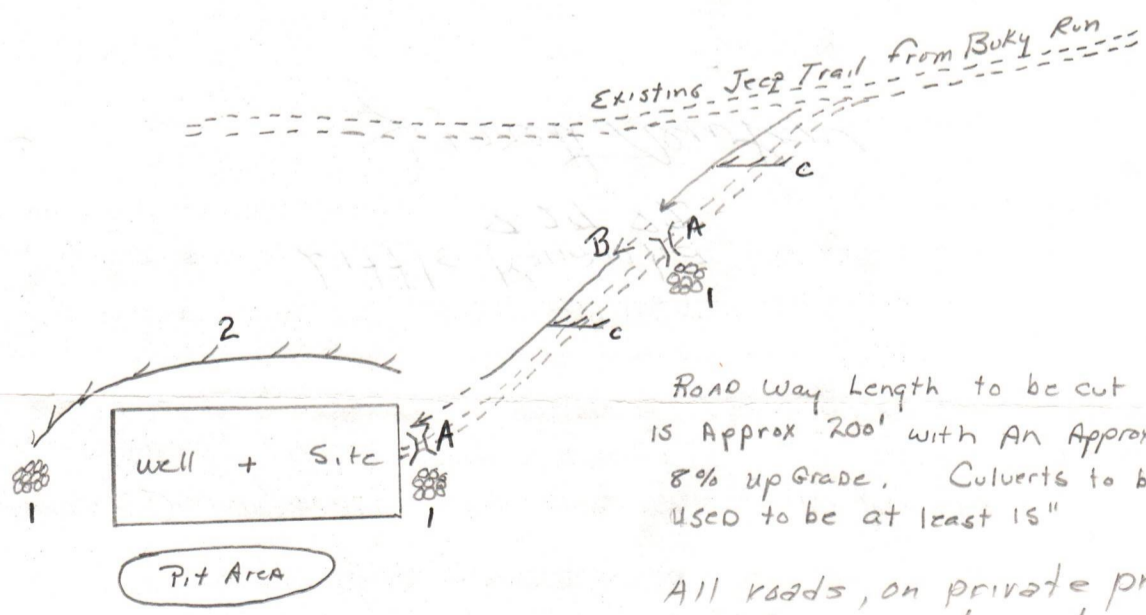 Existing Jeep Trail from Buky Run
C
A
B
1
C
2
A
Well + Site
1
1
Pit Area
ROAD Way Length to be cut
is Approx 200' with An Approx
8% up Grade. Culverts to b
used to be at least 15"
All roads, on private pr